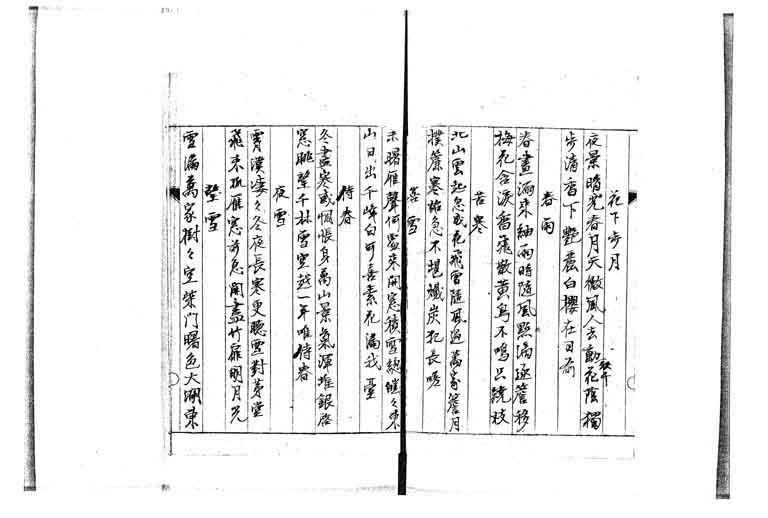 花下步月
夜景晴光春月天微風人去動花陰獨
步清香下艷叢白櫻在目前
春雨
春晝滿來細雨時隨風點滴逐簷移
梅花含淚香飛散黃鳥不鳴只繞枝
苦寒
北山雲起忽成花飛雪隨風過萬家簷月
撲簾寒	急不堪爐炭犯長嗟
喜雪
未曙雁聲何處來開窓積雪總皚々東
山日出千峰白可喜素花滿我臺
待春
冬盡寒威惆悵身萬山景氣渾堆銀啓
窓眺望千林雪空越一年唯待春
夜雪
霄漢凄々冬夜長寒更聽雪對茅堂
飛來孤雁窓前急開盡竹扉明月光
望雪
雪滿萬家樹々空柴門曙色大湖東